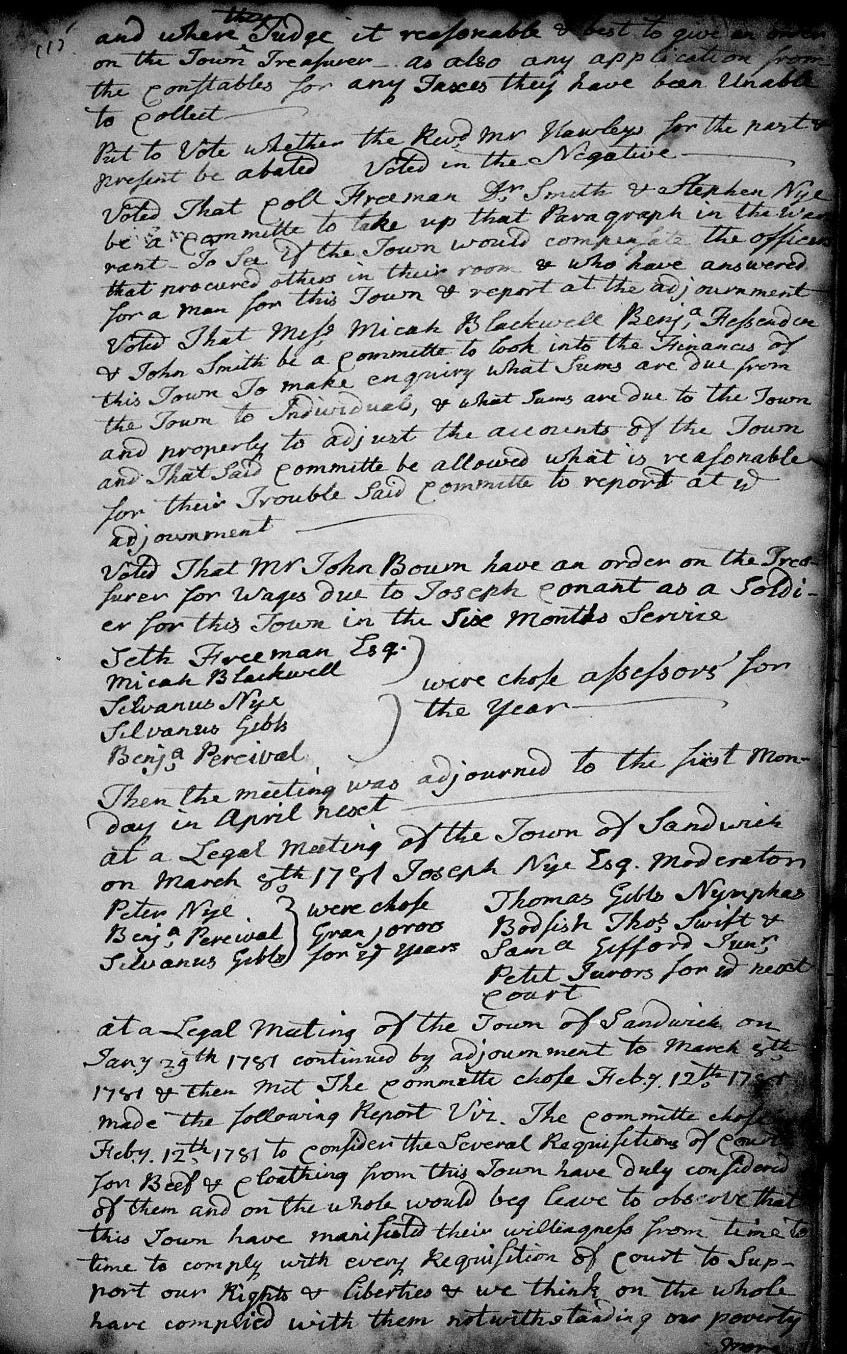 (1)
they
and where Judge it reasonable & best to give an order
on the Town Treasurer as also any application from
the constables for any Taxes they have been Unable
to collect
Put to Vote whether the Revd Mr Hawleys for the past &
present be abated Voted in the Negative
Voted That Coll Freeman Dr Smith & Stephen Nye
be a Committe to take up that Paragraph in the War
rant To See if the Town would compensate the officers
that procured others in their room & who have answered
for a man for this Town & report at the adjournment
Voted That Mess Micah Blackwell Benja Fessenden
& John Smith be a Committe to look into the Finances of
this Town To make enquiry what Sums are due from
the Town to Individuals, & what Sums are due to the Town
and properly to adjust the accounts of the Town
and That Said Committe be allowed what is reasonable
for their Trouble Said Committe to report at sd
adjournment
Voted That Mr John Bourn have an order on the Trea-
surer for Wages due to Joseph Conant as a Soldi-
er for this Town in the Six Months Service
Seth Freeman Esq.
Micah Blackwell
Silvanus Nye
Silvanus Gibbs
Benja Percival
were chose assessors for
the Year
Then the meeting was adjourned to the first Mon-
day in April next
at a Legal Meeting of the Town of Sandwich
on March 8th 1781 Joseph Nye Esq. Moderator
Peter Nye
Benja Percival
Silvanus Gibbs
were chose
Gran jorors
for sd years
Thomas Gibbs Nymphas
Bodfish Thos Swift &
Sam Gifford Junr
Petit Jurors for sd next
court
at a Legal Meeting of the Town of Sandwich on
Jany 29th 1781 continued by adjournment to March 8th
1781 & then Met The Committe chose Feby. 12th 1781
made the following Report Viz. The Committe chose
Feby. 12th 1781 to consider the Several Requisitions of Court
for Beef & Cloathing from this Town have duly considered
of them and on the whole would beg leave to observe that
this Town have manifestd their willingness from time to
time to comply with every Requisition of Court to Sup-
port our Rights & Liberties & we think on the whole
have complied with them notwithstanding our poverty
more